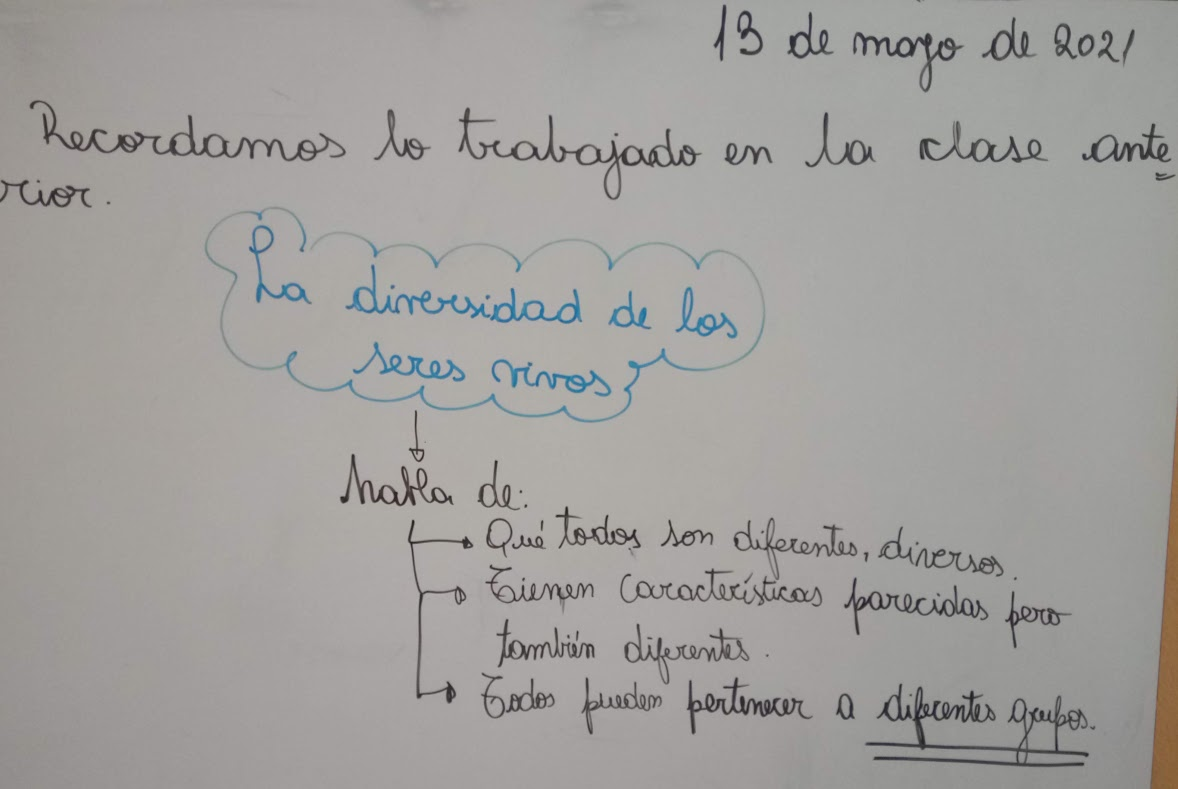 13 de mayo de 2021
Recordamos lo trabajado en la clase ante
rior.
La diversidad de los
seres vivos
habla de:
Qué todos son diferentes, diversos.
Tienen características parecidas pero
también diferentes.
Todos pueden pertenecer a diferentes grupos.